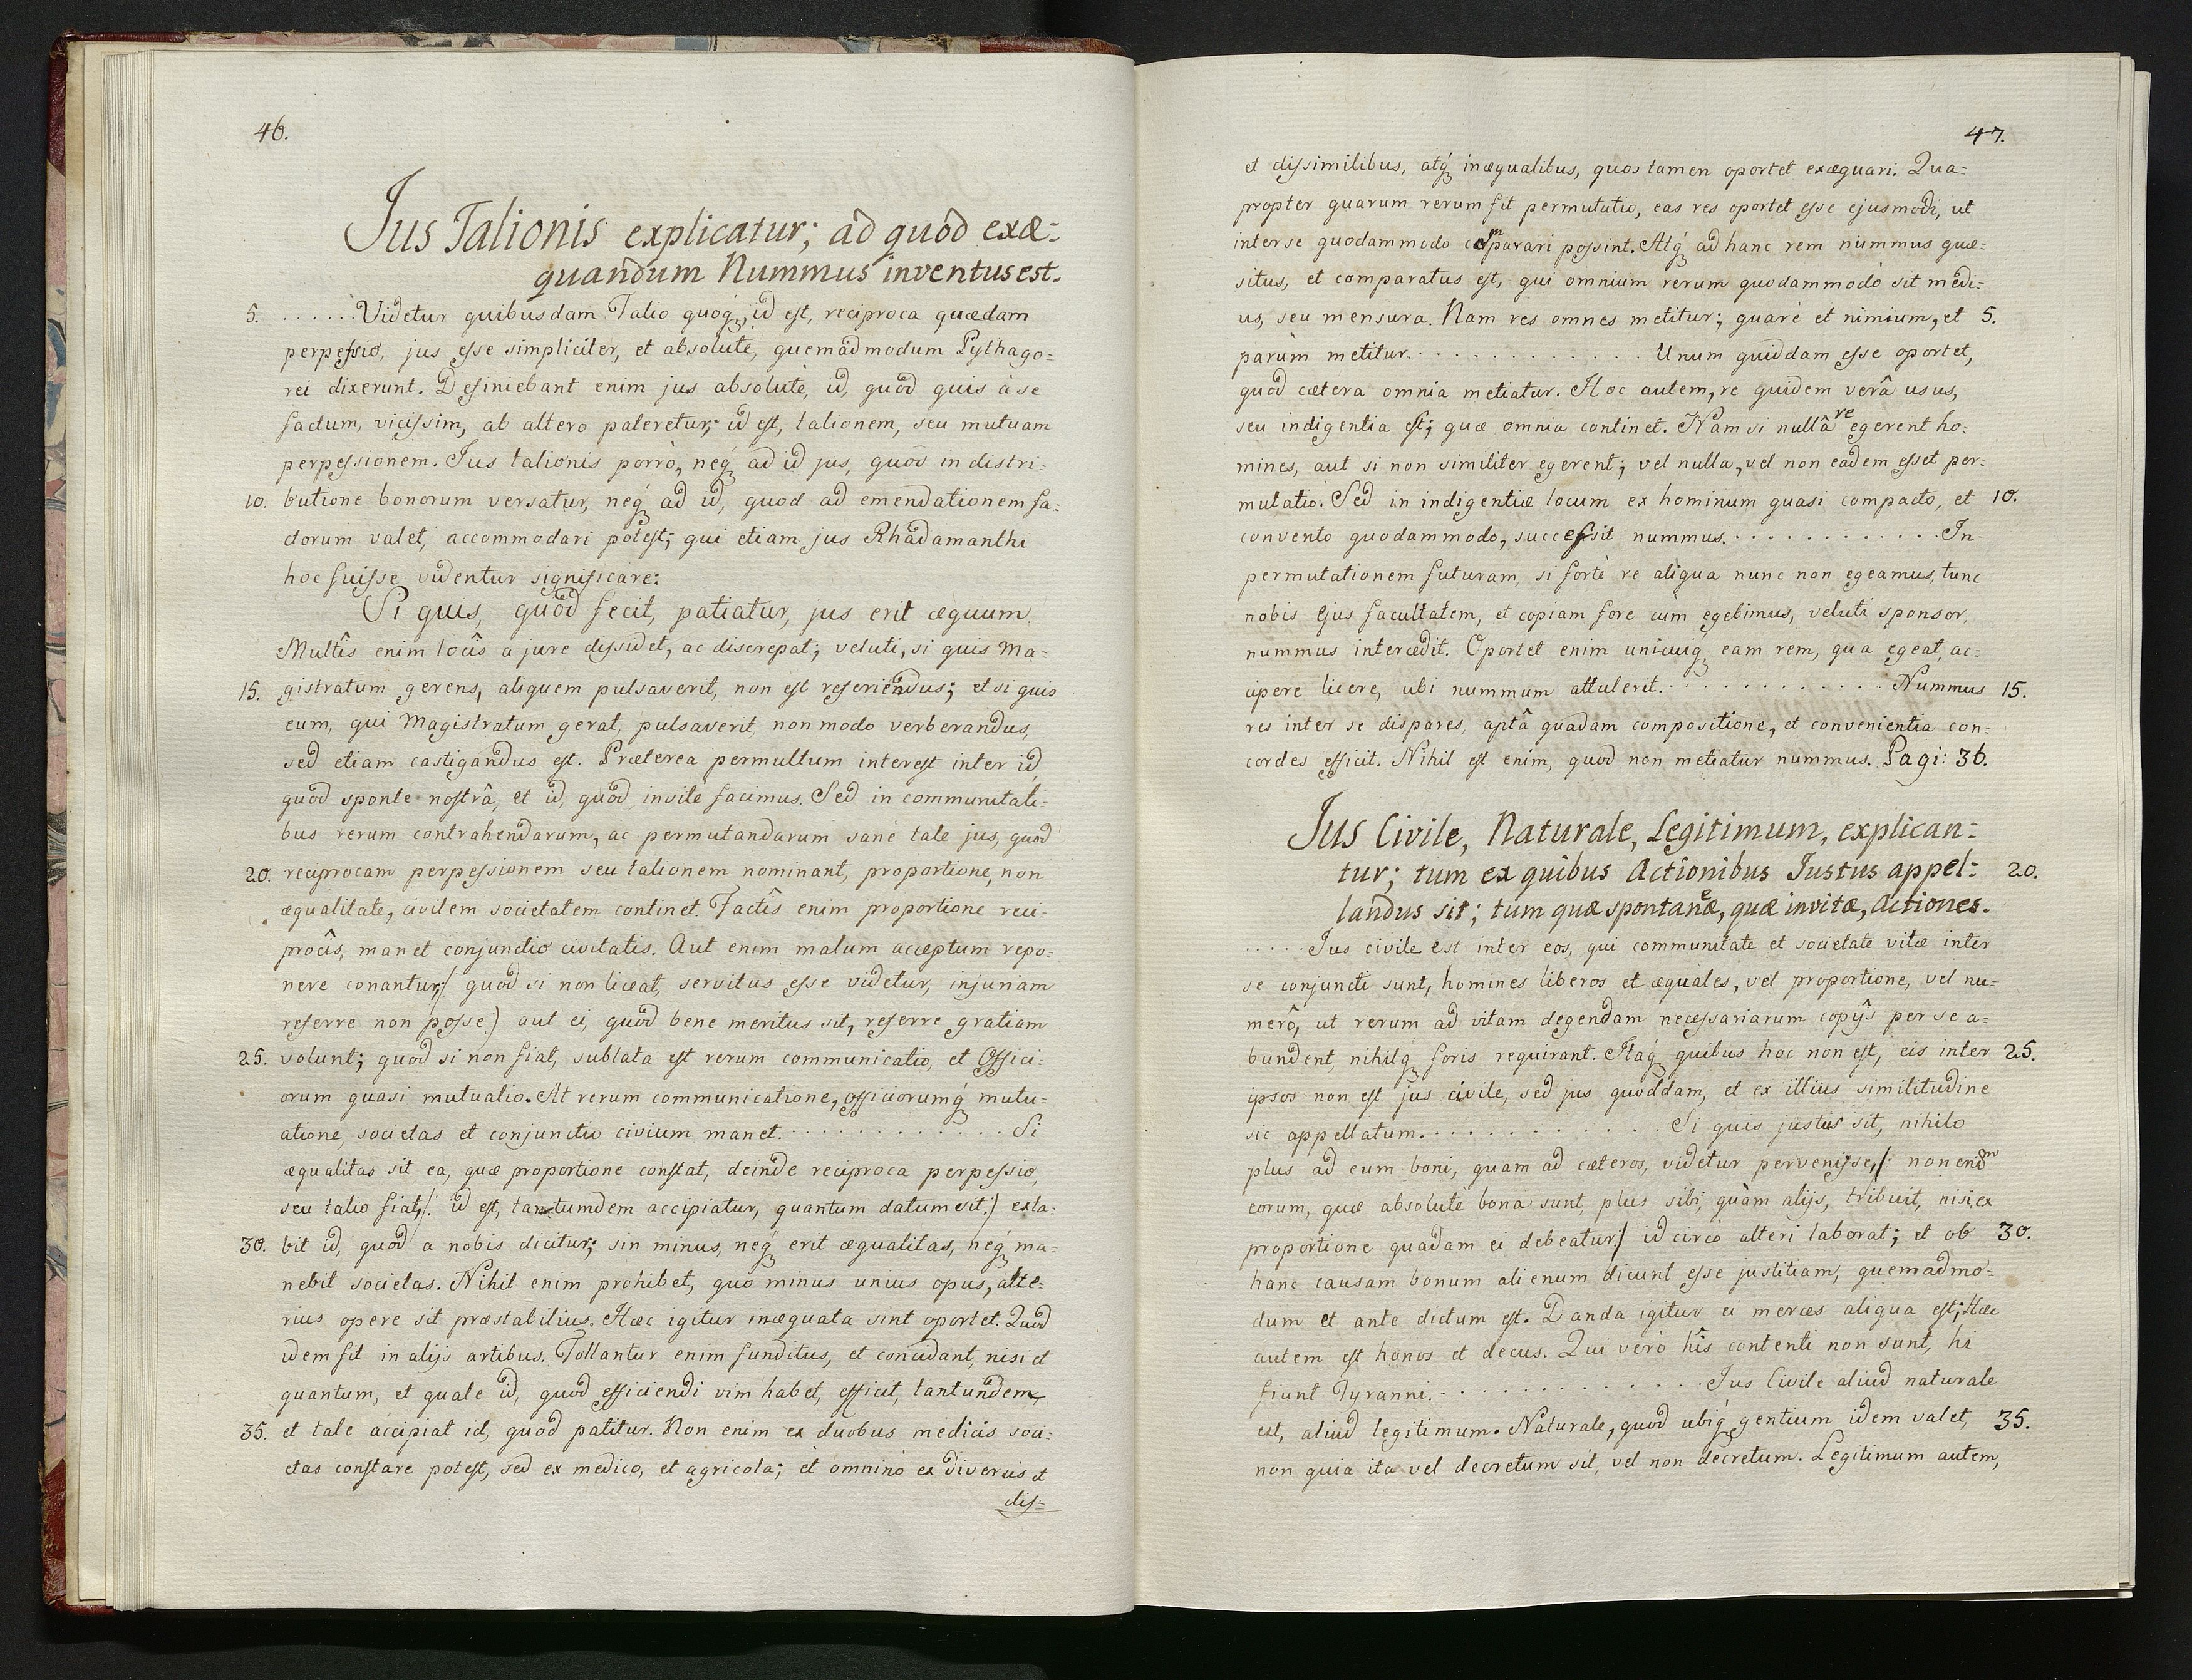 46.
Jus Talionis explicatur; ad quod exæ=
quandum Nummus inventus est.
5. ...... Videtur quibusdam Talio quoq́ꝫ, id est, reciproca quædam
perpessio, jus esse simpliciter, et absolutè, quemadmodum Pythago=
rei dixerunt. Definiebant enim jus absolutè, id, quod quis à se
factum, vicissim, ab altero pateretur; id est, talionem, seu mutuam
perpessionem. Jus talionis porrò, neq́ꝫ ad id jus, quod in distri=
10. butione bonorum versatur, neq́ꝫ ad id, quod ad emendationem fa=
ctorum valet, accommodari potest; qui etiam jus Rhadamanthi
hoc fuisse videntur significare:
Si quis, quod fecit, patiatur, jus erit æquum.
Multîs enim locîs a jure dissidet, ac discrepat; veluti, si quis Ma=
15. gistratum gerens, aliquem pulsaverit, non est referiendus; et si quis
eum, qui Magistratum gerat, pulsaverit, non modo verberandus,
sed etiam castigandus est. Præterea permultum interest inter id
quod sponte nostrâ, et id, quod invite facimus. Sed in communitati=
bus rerum contrahendarum, ac permutandarum sanè tale jus, quod
20. reciprocam perpessionem seu talionem nominant, proportione, non
æqualitate, civilem societatem continet. Factîs enim proportione reci=
procîs, manet conjunctio civitatis. Aut enim malum acceptum repo=
nere conantur,/: quod si non liceat, servitus esse videtur, injuriam
referre non posse:) aut ei, quod bene meritus sit, referre gratiam
25. volunt; quod si non fiat, sublata est rerum communicatio, et Offici=
orum quasi mutuatio. At rerum communicatione, officiorumq́ꝫ mutu=
atione, societas et conjunctio civium manet. . . . . . . . . . . . . Si
æqualitas sit ea, quæ proportione constat, deinde reciproca perpessio,
seu talio fiat,/: id est, tantumdem accipiatur, quantum datum sit:/ exta=
30. bit id, quod a nobis dicitur; sin minus, neq́ꝫ erit æqualitas, neq́ꝫ ma=
nebit societas. Nihil enim prohibet, quo minus unius opus, alte=
rius opere sit præstabilius. Hæc igitur inæquata sint oportet. Quod
idem fit in alijs artibus. Tollantur enim funditus, et concidant, nisi et
quantum, et quale id, quod efficiendi vim habet, efficit, tantundem,
35. et tale accipiat id, quod patitur. Non enim ex duobus medicis soci=
etas constare potest, sed ex medico, et agricola; et omninò ex diversis et
dis=
47.
et dissimilibus, atq́ꝫ inæqualibus, quos tamen oportet exæquari. Qua=
propter quarum rerum fit permutatio, eas res oportet esse ejusmodi, ut
inter se quodammodo comparari possint. Atq́ꝫ ad hanc rem nummus quæ=
situs, et comparatus est, qui omnium rerum quodammodò sit medi=
us, seu mensura. Nam res omnes metitur; quarè et nimium, et 5.
parùm metitur. . . . . . . . . . . . . . Unum quiddam esse oportet,
quod cætera omnia metiatur. Hoc autem, re quidem verâ usus,
seu indigentia est; quæ omnia continet. Nam si nullâ re egerent ho=
mines, aut si non similiter egerent; vel nulla, vel non eadem esset per=
mutatio. Sed in indigentiæ locum ex hominum quasi compacto, et 10.
convento quodammodo, successit nummus. . . . . . . . . . . . . In
permutationem futuram, si fortè re aliqua nunc non egeamus, tunc
nobis ejus facultatem, et copiam fore cum egebimus, velùti sponsor,
nummus intercedit. Oportet enim unicuiq́ꝫ eam rem, qua egeat, ac=
cipere licere, ubi nummum attulerit. . . . . . . . . . . . . Nummus 15.
res inter se dispares, aptâ quadam compositione, et convenientia con=
cordes efficit. Nihil est enim, quod non metiatur nummus. Pagi: 36.
Jus Civile, Naturale, Legitimum, explican=
tur; tum ex quibus Actionibus Justus appel= 20.
landus sit; tum quæ spontaneæ, quæ invitæ, Actiones.
. . . . . Jus civile est inter eos, qui communitate et societate vitæ inter
se conjuncti sunt, homines liberos et æquales, vel proportione, vel nu=
merô, ut rerum ad vitam degendam necessariarum copijs per se a=
bundent, nihilq́ꝫ foris requirant. Itaq́ꝫ quibus hoc non est, eis inter 25.
ipsos non est jus civile, sed jus quoddam, et ex illius similitudine
sic appellatum. . . . . . . . . . . . . Si quis justus sit, nihilo
plus ad eum boni, quam ad cæteros, videtur pervenisse,/: non enim
eorum, quæ absolutè bona sunt, plus sibi, quàm alijs, tribuit, nisi ex
proportione quadam ei debeatur:/ idcircò alteri laborat; et ob 30.
hanc causam bonum alienum dicunt esse justitiam, quemadmo=
dum et ante dictum est. Danda igitur ei merces aliqua est; Hæc
autem est honos et decus. Qui verò hîs contenti non sunt, hi
fiunt Tyranni. . . . . . . . . . . . . . Jus Civile aliud naturale
est, aliud legitimum. Naturale, quod ubiq́ꝫ gentium idem valet, 35.
non quia ita vel decretum sit, vel non decretum. Legitimum autem,